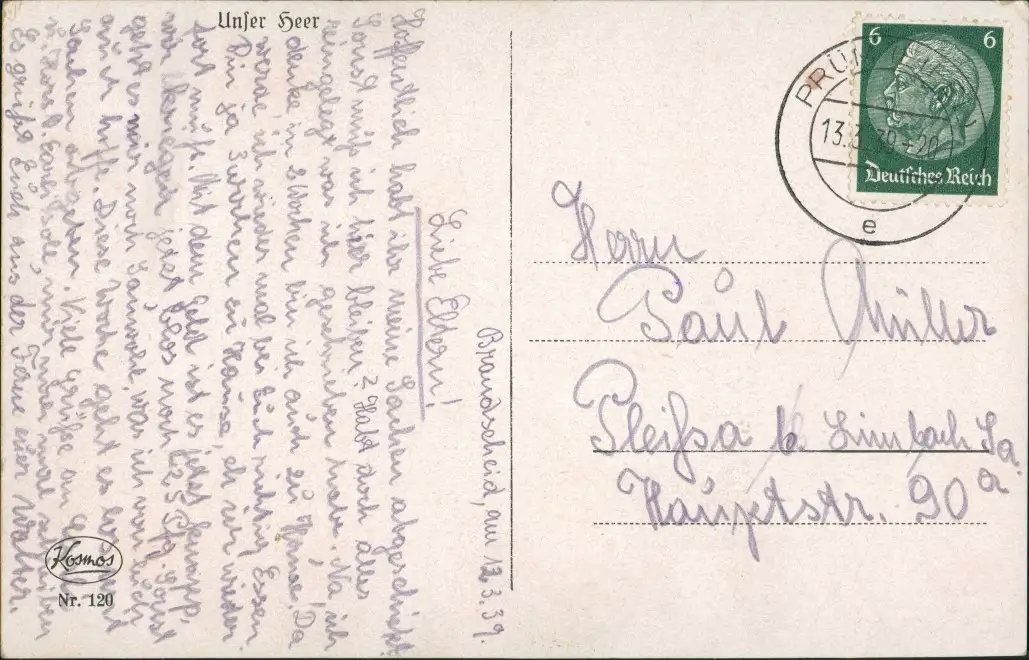 Unser Heer
Brandscheid, am 12.3.39.
Liebe Eltern!
Hoffentlich habt ihr meine Sachen abgeschickt
Sonst muß ich hier bleiben. Habt doch alles
reingelegt was ich geschrieben habe. Na ich
denke, in 2 Wochen bin ich auch zu Hause. Da
werde ich wieder mal bei Euch richtig Essen.
Bin ja 3 Wochen zu Hause, eh ich wieder
fort muß. Mit dem Geld ist es jetzt knapp,
wir kriegen jetzt blos noch 25 Pfg. Sonst
geht es mir noch sauwohl, was ich von Euch
auch hoffe. Diese Woche geht es
Sachen abgeben. Viele Grüße an
u. soll mir immer mal schreiben
Es grüßt Euch aus der Ferne euer Walter.
Kosmos
Nr. 120
PRÜM
13.3.39-20
e
6 6
Deutsches Reich
Herrn
Paul Müller
Pleißa b. Limbach Sa.
Hauptstr. 90a